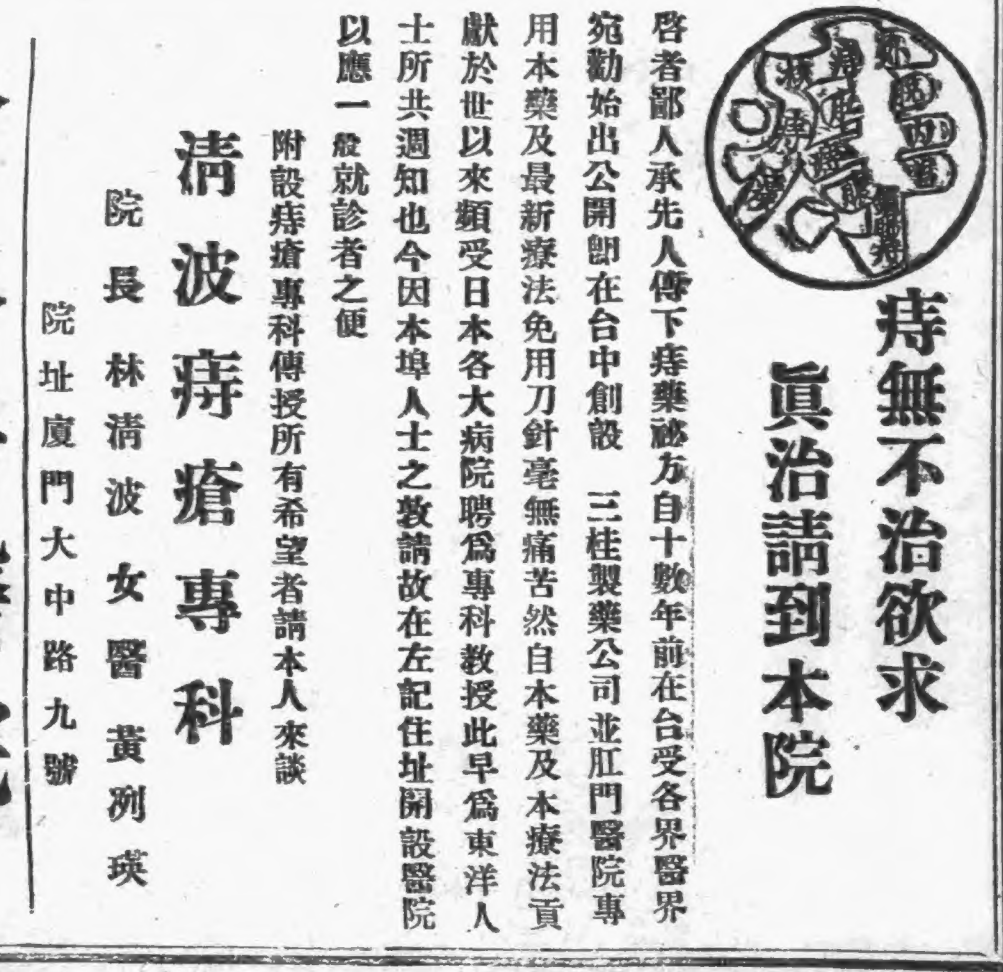 痔無不治欲求
眞治請到本院
啓者鄙人承先人傳下痔藥祕方自十數年前在台受各界醫界
宛勸始出公開卽在台中創設 三桂製藥公司並肛門醫院專
用本藥及最新療法免用刀針毫無痛苦然自本藥及本療法貢
獻於世以來頻受日本各大病院聘爲專科敎授此早爲東洋人
士所共週知也今因本埠人士之敦請故在左記住址開設醫院
以應一般就診者之便
附設痔瘡專科傳授所有希望者請本人來談
淸波痔瘡專科
院長林淸波女醫黃冽瑛
院址廈門大中路九號